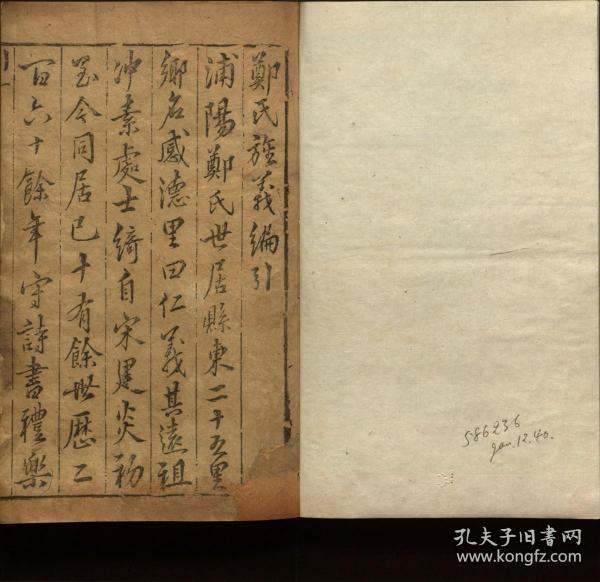 鄭氏旌義編引
浦陽鄭氏世居縣東二十五里
鄉名感德里曰仁義其遠祖
冲素處士綺自宋建炎初
至今同居已十有餘世歷二
百六十餘年守詩書禮樂
586236
Jan.12.40.
孔夫子旧书网
www.kongfz.com